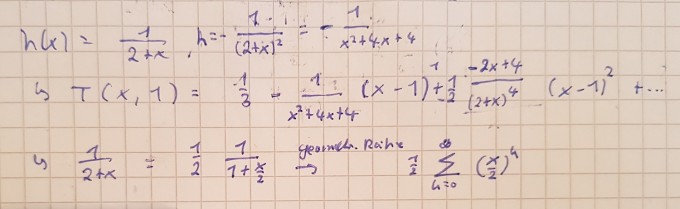 h(x) = 1/(2+x), h = - 1/(2+x)² = - 1/(x²+4x+4)
↳ T(x, 1) = 1/3 - 1/(x²+4x+4) (x-1)¹ + 1/2 (-2x+4)/(2+x)⁴ (x-1)² + ...
↳ 1/(2+x) = 1/2 1/(1+x/2) geometr. Reihe → 1/2 ∞∑n=0 (x/2)ⁿ